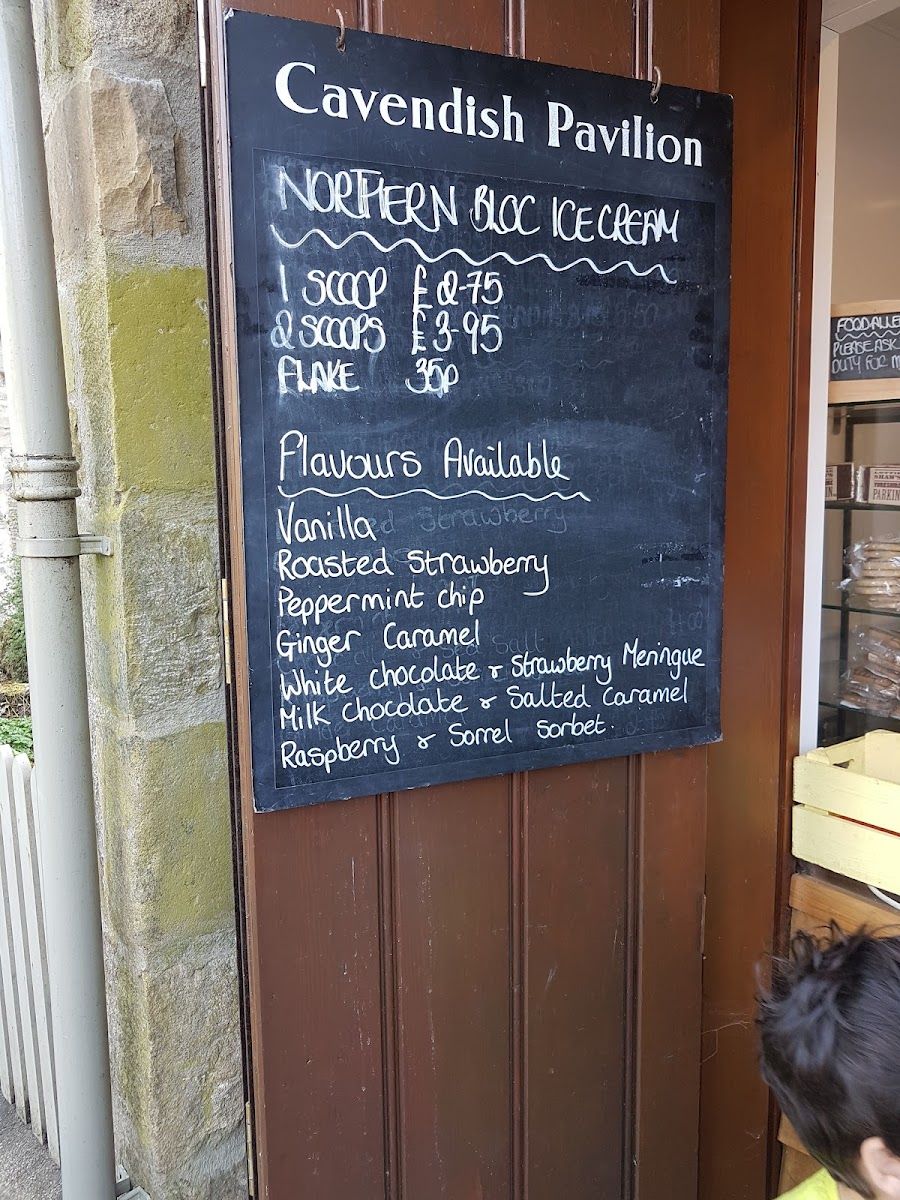 Cavendish Pavilion
NORTHERN BLOC ICE CREAM
1 SCOOP £2-75
2 SCOOPS £3-95
FLAKE 35p
Flavours Available
Vanilla
Roasted Strawberry
Peppermint chip
Ginger Caramel
White chocolate & Strawberry Meringue
Milk Chocolate & Salted Caramel
Raspberry & Sorrel Sorbet.
FOOD ALLE
PLEASE ASK
DUTY FOR M
PARKIN